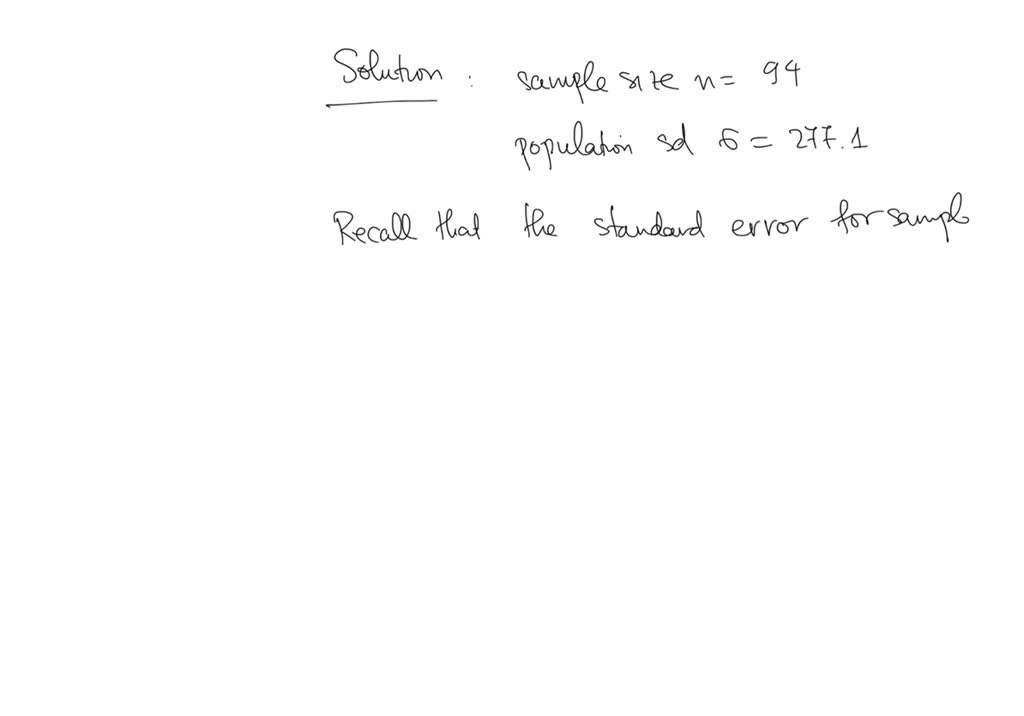 Solution : sample size n = 94
population sd σ = 277.1
Recall that the standard error for sample